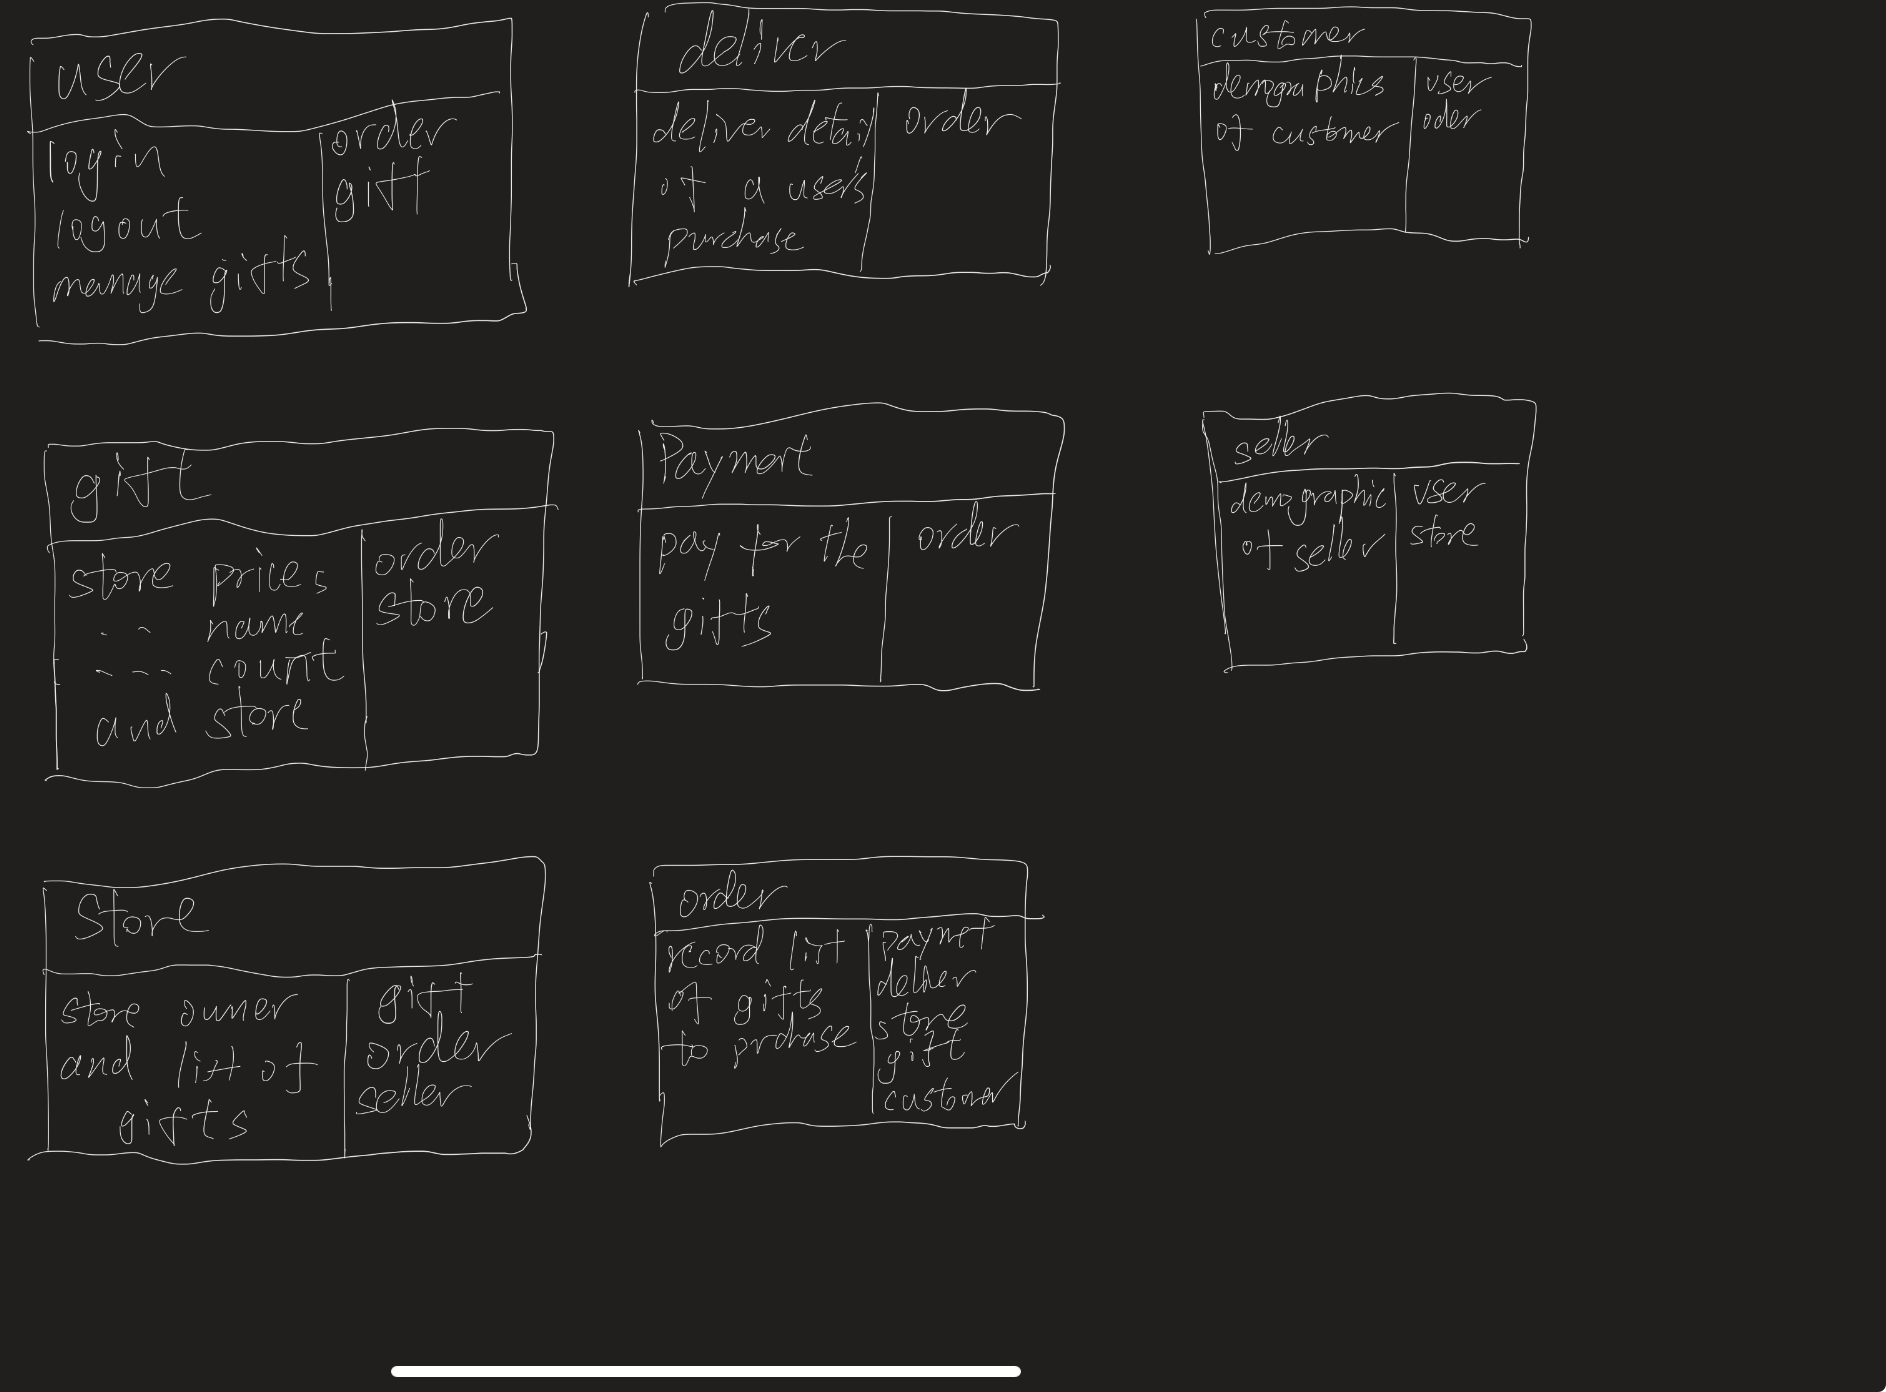 user
login
logout
manage gifts
order
gift
deliver
deliver detail
of a user's
purchase
order
customer
demographics
of customer
user
oder
gift
store prices
-- name
--- count
and store
order
store
Payment
pay for the
gifts
order
seller
demographic
of seller
user
store
Store
store owner
and list of
gifts
gift
order
seller
order
record list
of gifts
to prchase
paynet
deliver
store
gift
customer